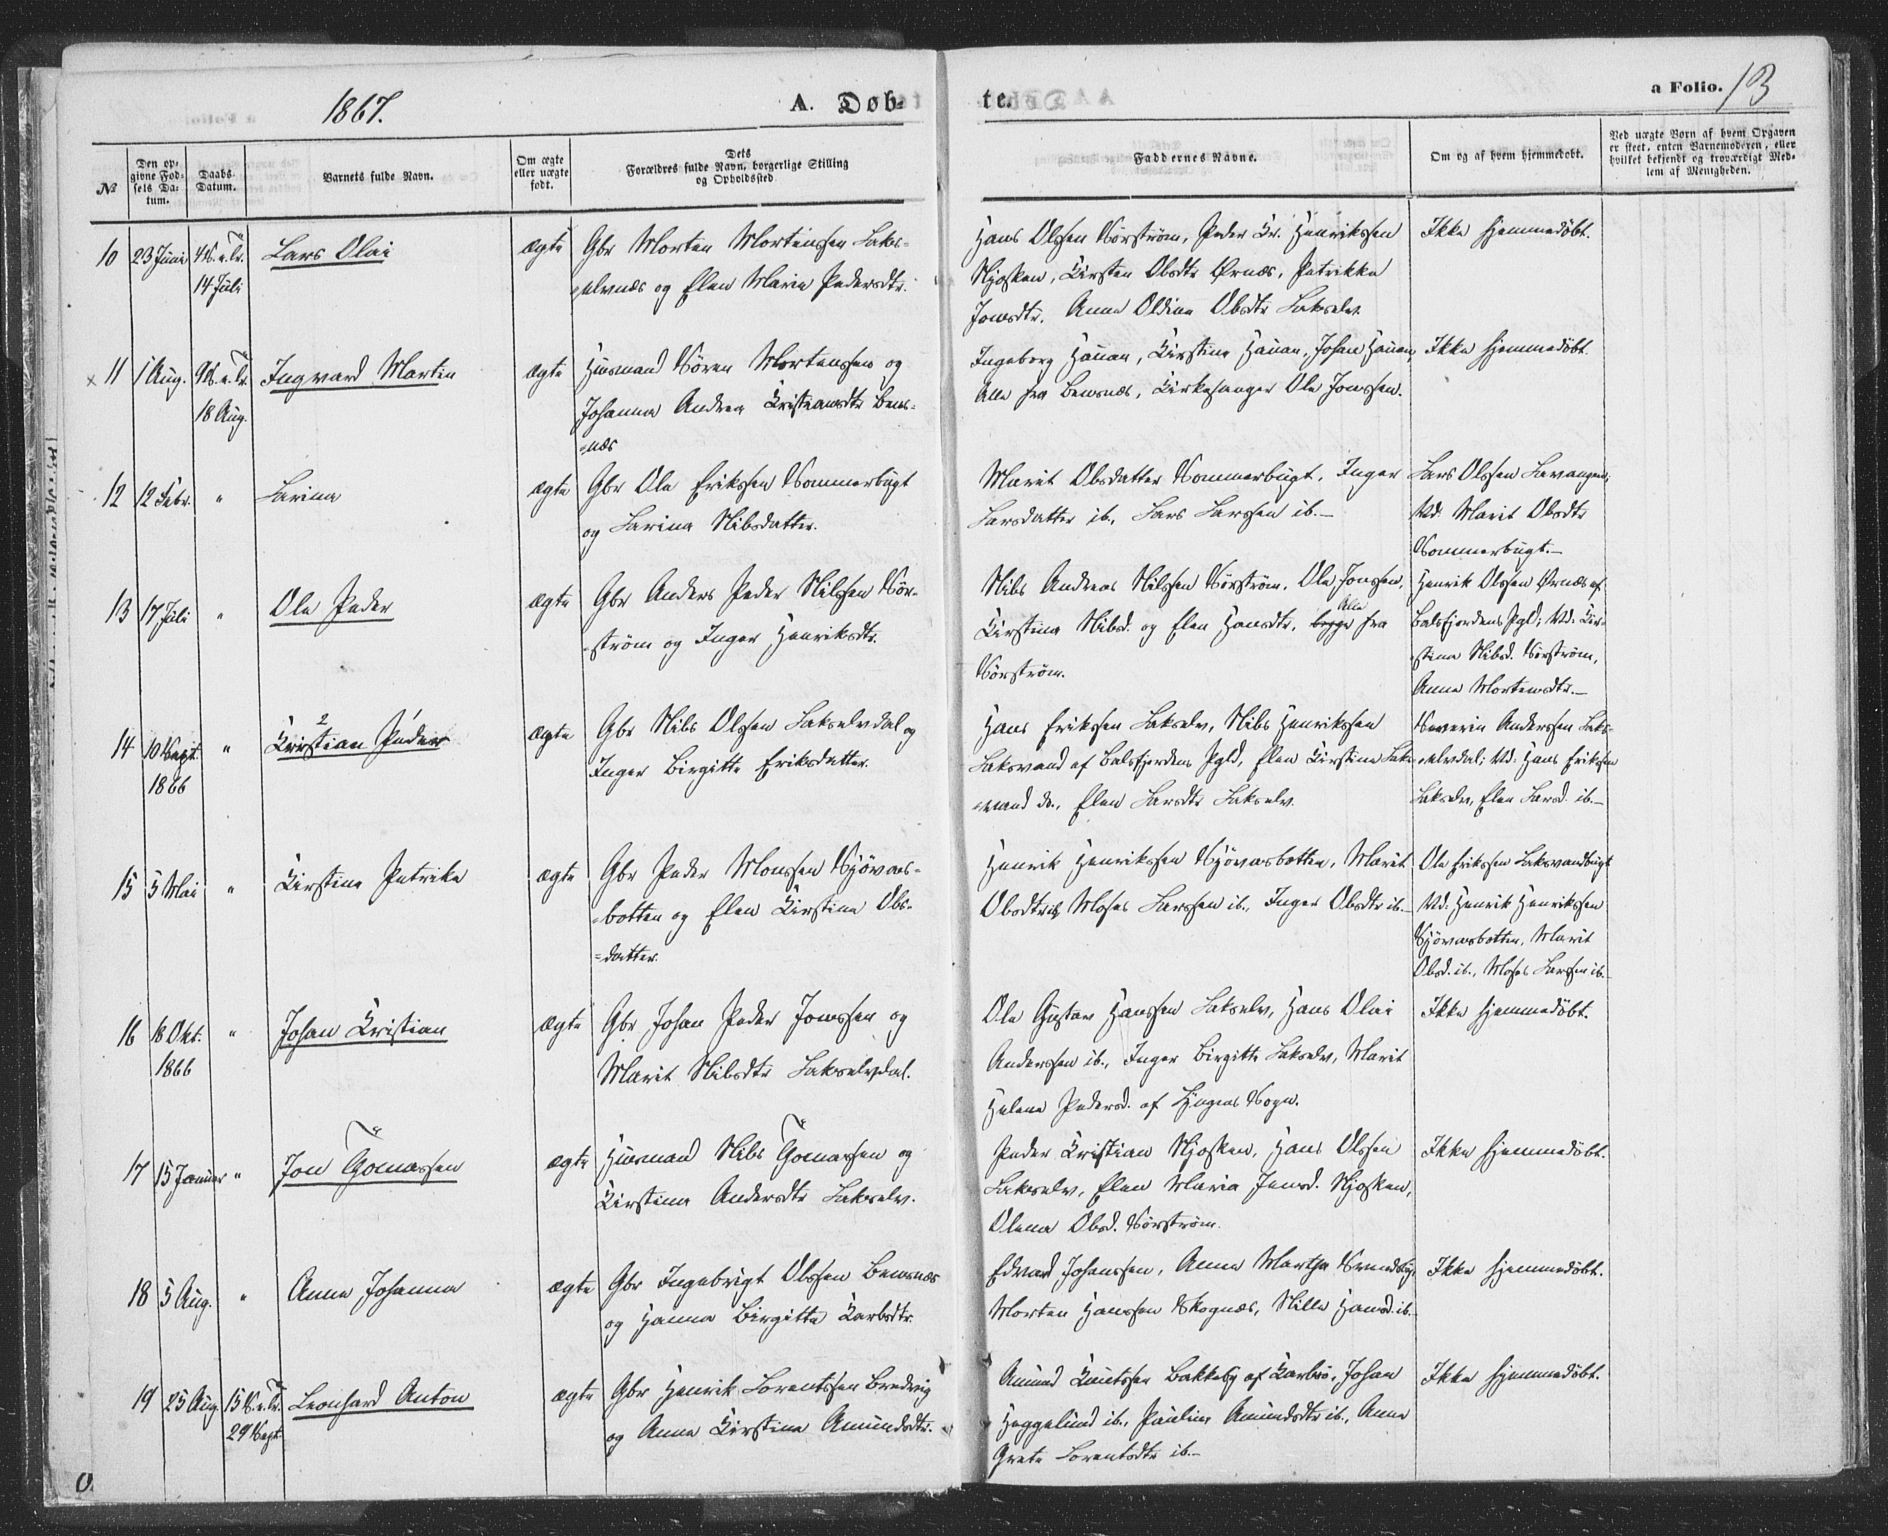 1867.
A. Døb-
te.
a Folio. 13
№
Den op-
givne Fød-
sels Da-
tum.
Daabs
Datum.
Barnets fulde Navn.
Om ægte
eller uægte
født.
Dets
Forældres fulde Navn, borgerlige Stilling
og Opholdssted
Faddernes Navne.
Om og af hvem hjemmedøbt.
Ved uægte Børn af hvem Opgaven
er skeet, enten Barnemoderen, eller
hvilket bekjendt og troværdigt Med-
lem af Menigheden.
10 23 Juni 4 S. e. Tr. Lars Olai ægte Gbr Morten Mortenssen Laks-
14 Juli
-elvnæs og Elen Maria Pedersdtr.
Hans Olssen Sørstrøm, Peder Kr. Henrikssen
Njosken, Kirsten Olsdtr Ørnæs, Patrikka
Jonsdtr. Anna Oldina Olsdtr Lakselv.
Ikke hjemmedøbt.
x 11 1 Aug. 9 S. e. Tr. Ingvard Martin ægte Husmand Sören Mortenssen og
18 Aug.
Johanna Andrea Kristiansdtr Bens-
-næs
Ingeborg Hauan, Kirstine Hauan, Johan Hauan,
Alle fra Bensnæs, Kirkesanger Ole Jonssen.
Ikke hjemmedøbt.
12 12 Febr. " Larina ægte Gbr Ole Erikssen Sommerbugt
og Larina Nilsdatter.
Marit Olsdatter Sommerbugt, Inger
Larsdatter ib., Lars Larssen ib.—
Lars Olssen Lavangen;
Vd: Marit Olsdtr
Sommerbugt.—
13 17 Juli " Ole Peder ægte Gbr Anders Peder Nilssen Sör-
-ström og Inger Henriksdtr.
Nils Andreas Nilssen Sørstrøm, Ole Jonssen,
Kirstina Nilsd. og Elen Hansdtr, begge Alle fra
Sørstrøm.
Henrik Olssen Ørnæs af
Balsfjordens Pgld; Vd: Kir-
-stina Nilsd. Sørstrøm,
Anna Mortensdtr.—
14 10 Sept. " Kristian Peder ægte Gbr Nils Olssen Lakselvdal og
1866
2 1
Inger Birgitte Eriksdatter.
Hans Erikssen Lakselv, Nils Henrikssen
Laksvand af Balsfjordens Pgld, Elen Kirstina Laks-
-vand do., Elen Larsdtr Lakselv.
Severin Anderssen Laks-
-elvdal; Vd: Hans Erikssen
Lakselv, Elen Larsd. ib.—
15 5 Mai " Kirstine Patrika ægte Gbr Peder Monssen Sjövas-
-botten og Elen Kirstina Ols-
-datter.
Henrik Henrikssen Sjövasbotten, Marit
Olsdtr ib, Moses Larssen ib., Inger Olsdtr ib.—
Ole Erikssen Laksvandbugt
Vd: Henrik Henrikssen
Sjövasbotten, Marit
Olsd. ib., Moses Larssen ib.—
16 18 Okt. " Johan Kristian ægte Gbr Johan Peder Jonssen og
1866
Marit Nilsdtr Lakselvdal.
Ole Gustav Hanssen Lakselv, Hans Olai
Anderssen ib., Inger Birgitte Lakselv, Marit
Helena Pedersd. af Lyngens Sogn.
Ikke hjemmedöbt.
17 15 Januar " Jon Tomassen ægte Husmand Nils Tomassen og
Kirstina Andersdtr Lakselv.
Peder Kristian Njosken, Hans Olssen
Lakselv, Elen Maria Jensd. Njosken,
Olena Olsd. Sörström.
Ikke hjemmedöbt.
18 5 Aug. " Anna Johanna ægte Gbr Ingebrigt Olssen Bensnæs
og Hanna Birgitta Karlsdtr.
Edvard Johanssen, Anna Martha Svendsby,
Morten Hanssen Skognæs, Nilla Hansd. ib.—
Ikke hjemmedöbt.
19 25 Aug. 15 S. e. Tr. Leonhard Anton ægte Gbr Henrik Lorentssen Bredvig
29 Sept.
og Anna Kirstina Amundsdtr.
Amund Knutssen Bakkeby af Karlsö, Johan
Heggelund ib., Pauline Amundsdtr ib., Anna
Grete Lorentsdtr ib.—
Ikke hjemmedöbt.